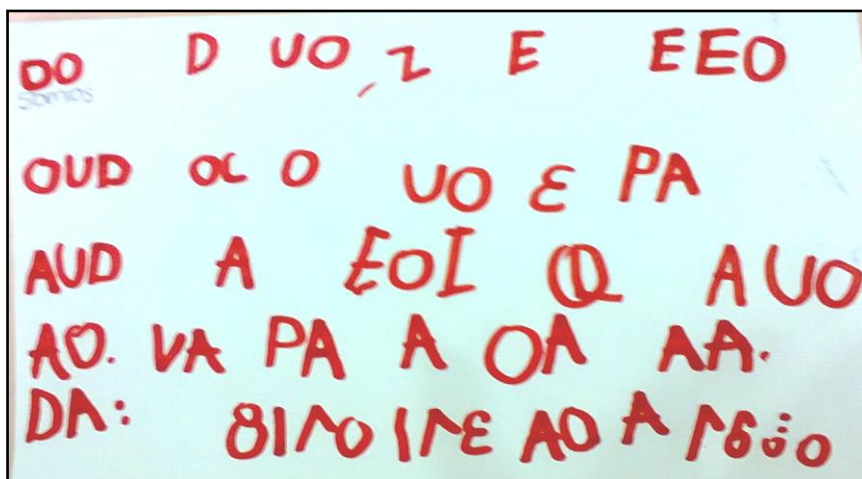 DO D UO, Z E EEO
somos
OUD OC O UO E PA
AUD A EOI Q AUO
AO. VA PA A OA AA.
DA: AO A